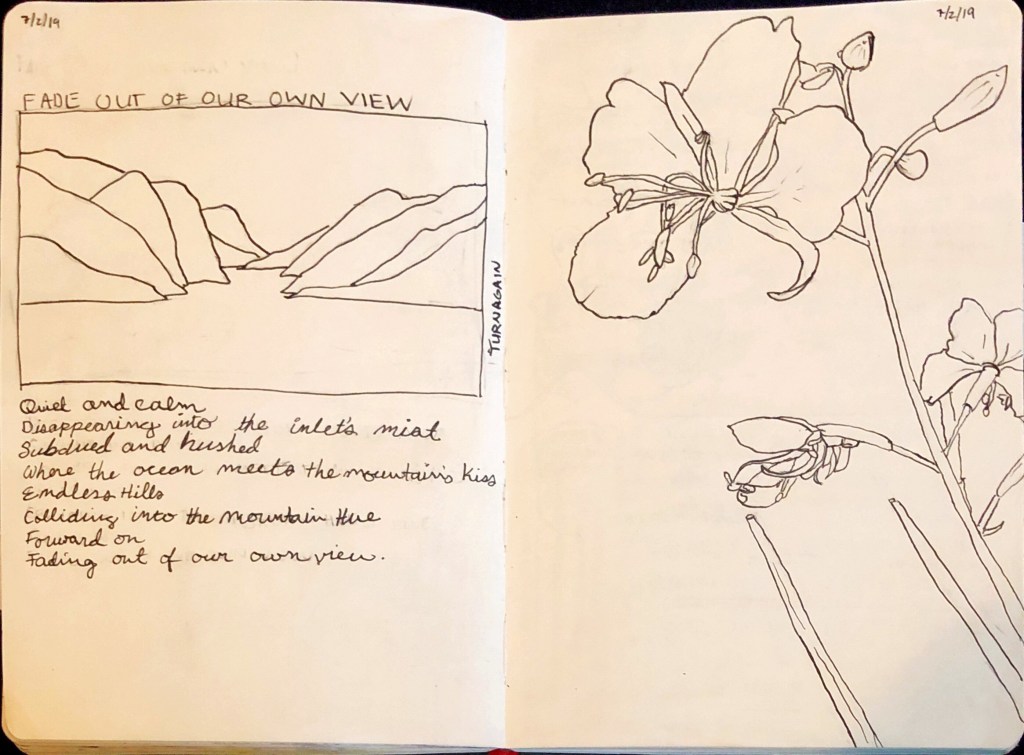 7/2/19
FADE OUT OF OUR OWN VIEW
TURNAGAIN
Quiet and calm
Disappearing into the inlet's mist
Subdued and hushed
Where the ocean meets the mountain's kiss
Endless Hills
Colliding into the mountain Hue
Forward on
Fading out of our own view.
7/2/19